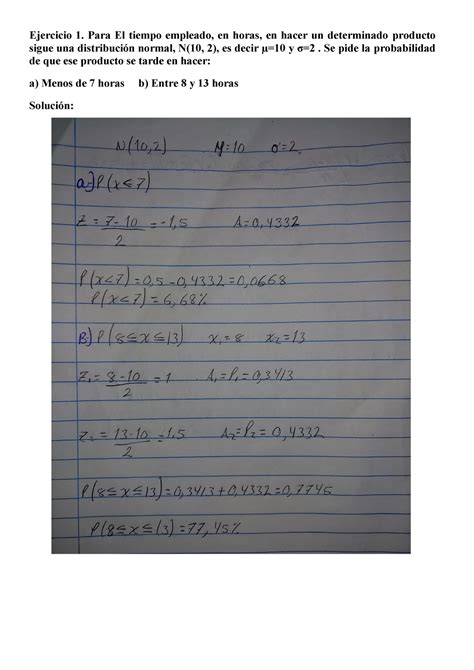 Ejercicio 1. Para El tiempo empleado, en horas, en hacer un determinado producto
sigue una distribución normal, N(10, 2), es decir μ=10 y σ=2 . Se pide la probabilidad
de que ese producto se tarde en hacer:
a) Menos de 7 horas b) Entre 8 y 13 horas
Solución:
N(10,2) M=10 σ=2
a-) P(x≤7)
Z = 7-10 = -1,5 A=0,4332
2
P(x<7)=0,5-0,4332=0,0668
P(x<7)=6,68%
B) P(8≤x≤13) x₁=8 x₂=13
Z₁= 8-10 = 1 A₁=P₁=0,3413
2
Z₂= 13-10 = 1.5 A₂=P₂=0,4332
2
P(8≤x≤13)=0,3413+0,4332=0,7745
P(8≤x≤13)=77,45%